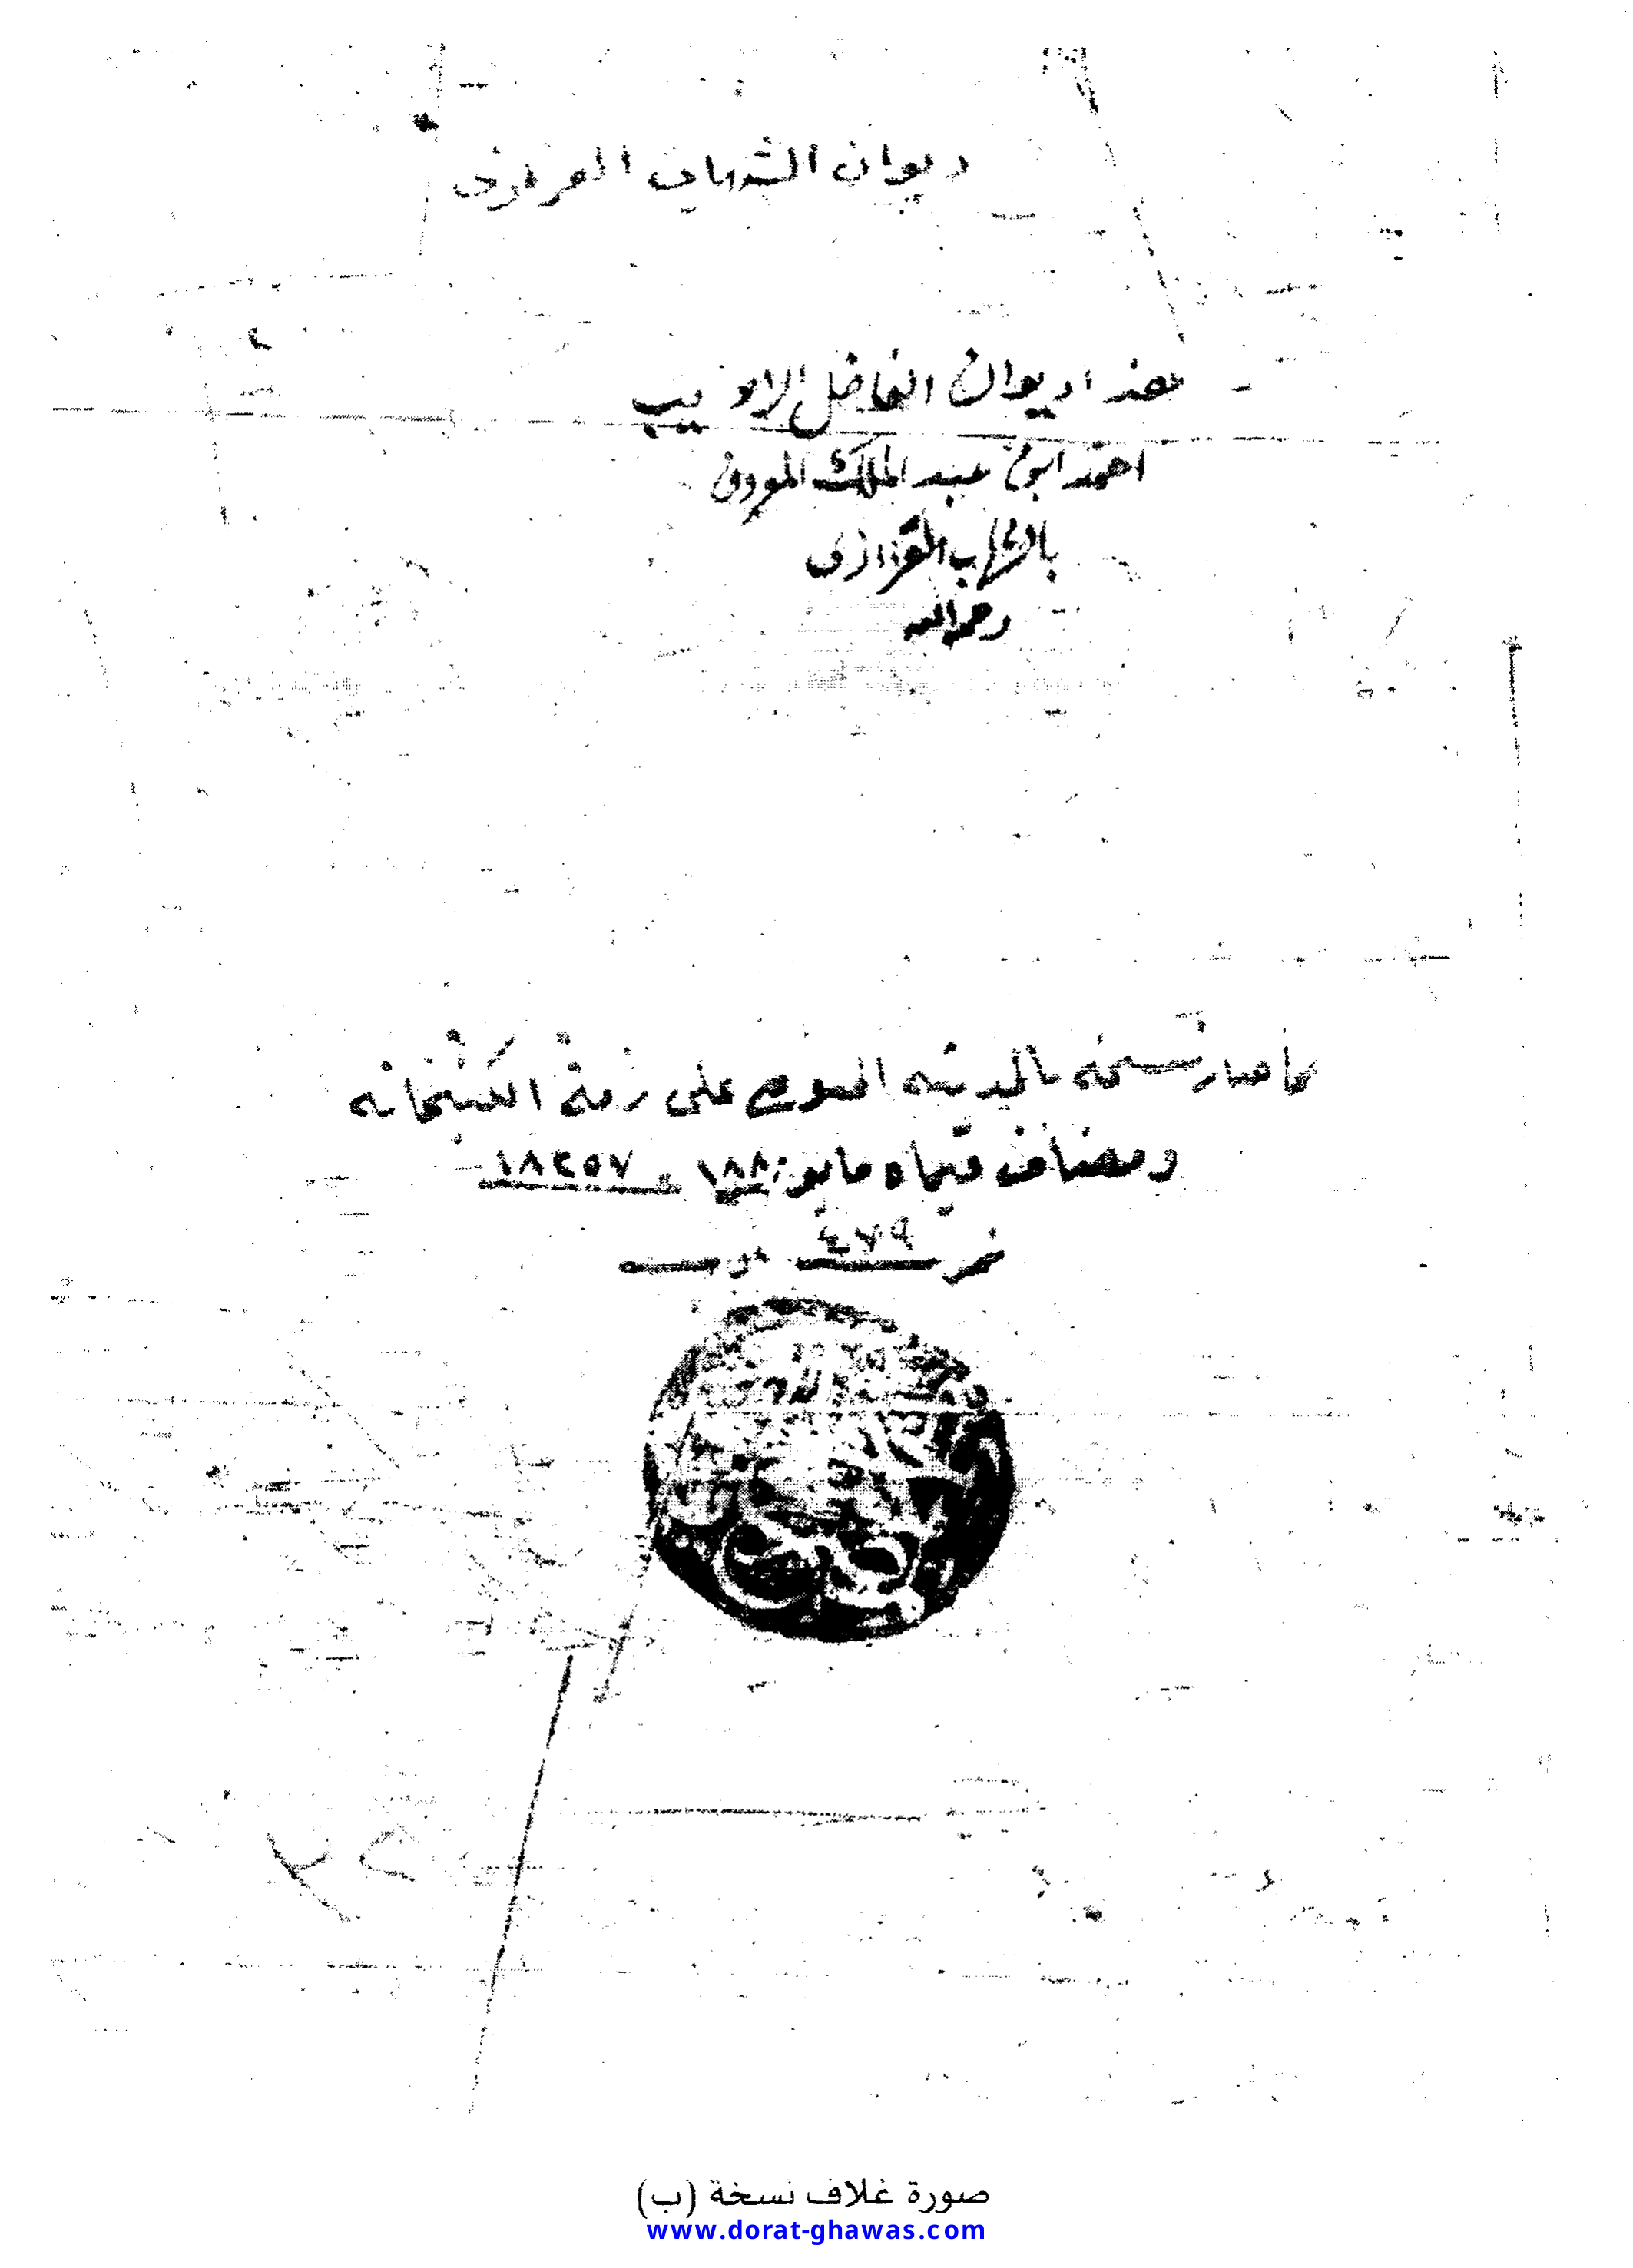 ديوان الشهاب العزازى
هذا ديوان الفاضل الاديب
احمد ابن عبد الملك المعروف
بالشهاب العزازى
رحمه الله
صار نسخه بالمدينه المنوره على ذمة الكتبخانه
ومضاف فى ماه مايو ١٨٨ ١٨٢٥٧
نمر ٤٧٩
صورة غلاف نسخة (ب)
www.dorat-ghawas.com